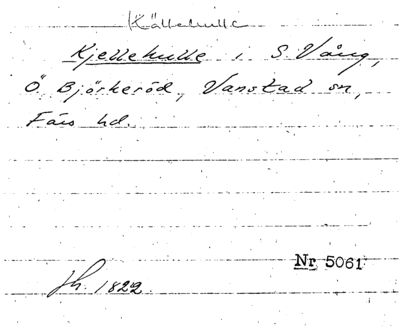 Källehulle
Kjellehulle i S. Vång,
Ö. Björkeröd, Vanstad sn,
Färs hd.
Nr 5061
Jh. 1822.